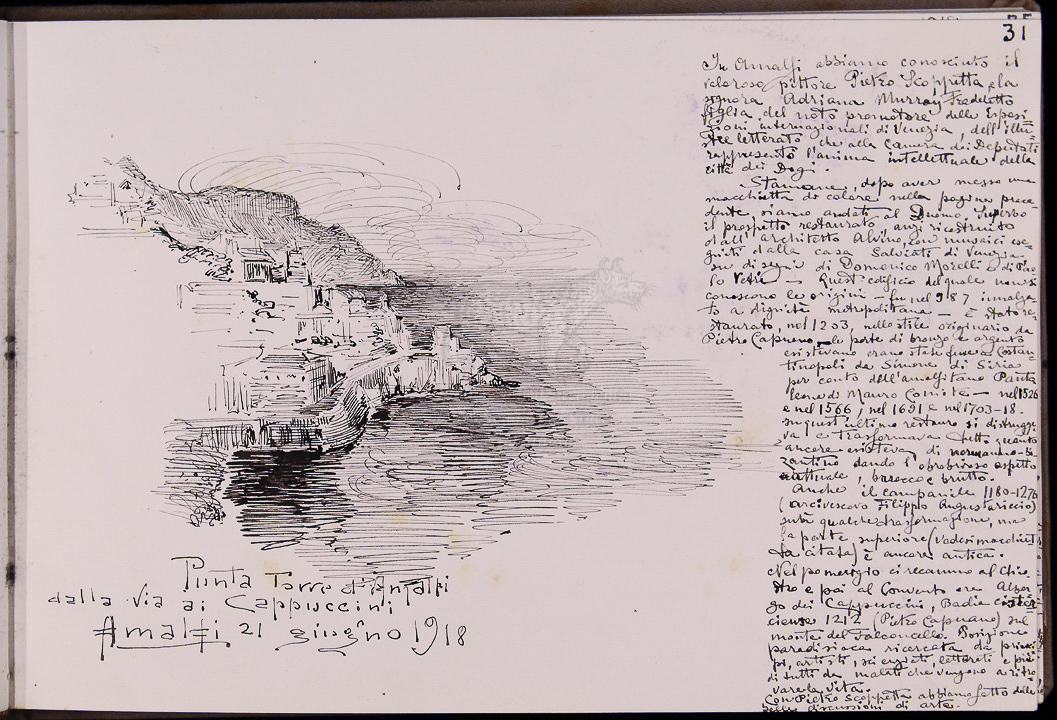 31
In Amalfi abbiamo conosciuto il
valoroso pittore Pietro Scoppetta e la
signora Adriana Murray Fradeletto
figlia del noto promotore delle Esposi=
zioni internazionali di Venezia, dell'illu=
stre letterato che alla Camera dei Deputati
rappresentò l'anima intellettuale della
città dei Dogi.
Stamane, dopo aver messo una
macchietta di colore nella pagina prece
dente, siamo andati al Duomo. Superbo
il prospetto restaurato, anzi ricostruito
dall'architetto Alvino, con musaici ese=
guiti dalla casa Salviati di Venezia
su disegni di Domenico Morelli e di Pao
lo Vetri — Quest'edificio del quale non si
conoscono le origini — fu nel 987 innalza
to a dignità metropolitana — è stato re
staurato, nel 1203, nello stile originario da
Pietro Capuano — le porte di bronzo e argento
esistevano erano state fuse a Costan
tinopoli da Simone di Siria
per conto dell'amalfitano Panta
leone di Mauro Comite — nel 1526
e nel 1566, nel 1691 e nel 1703-18.
In quest'ultimo restauro si distrugge
va e trasformava tutto quanto
ancora esisteva, di normanno-bi
zantino dando l'obbrobrioso aspetto
attuale, barocco e brutto.
Anche il campanile 1180-1276
(arcivescovo Filippo Augustariccio)
subì qualche trasformazione, ma
la parte superiore (vedesi macchiet
ta citata) è ancora antica.
Nel pomerigio ci recammo al Chio
stro e poi al Convento ora Alber
go dei Cappuccini, Badia cister
ciense 1212 (Pietro Capuano) sul
monte del Falconcello. Posizione
paradisiaca ricercata da princi
pi, artisti, scienziati, letterati e più
di tutti da malati che vengono a ritro
vare la vita.
Con Pietro Scoppetta abbiamo fatto delle
belle discussioni di arte.
Punta Torre d'Amalfi
dalla via ai Cappuccini
Amalfi 21 giugno 1918